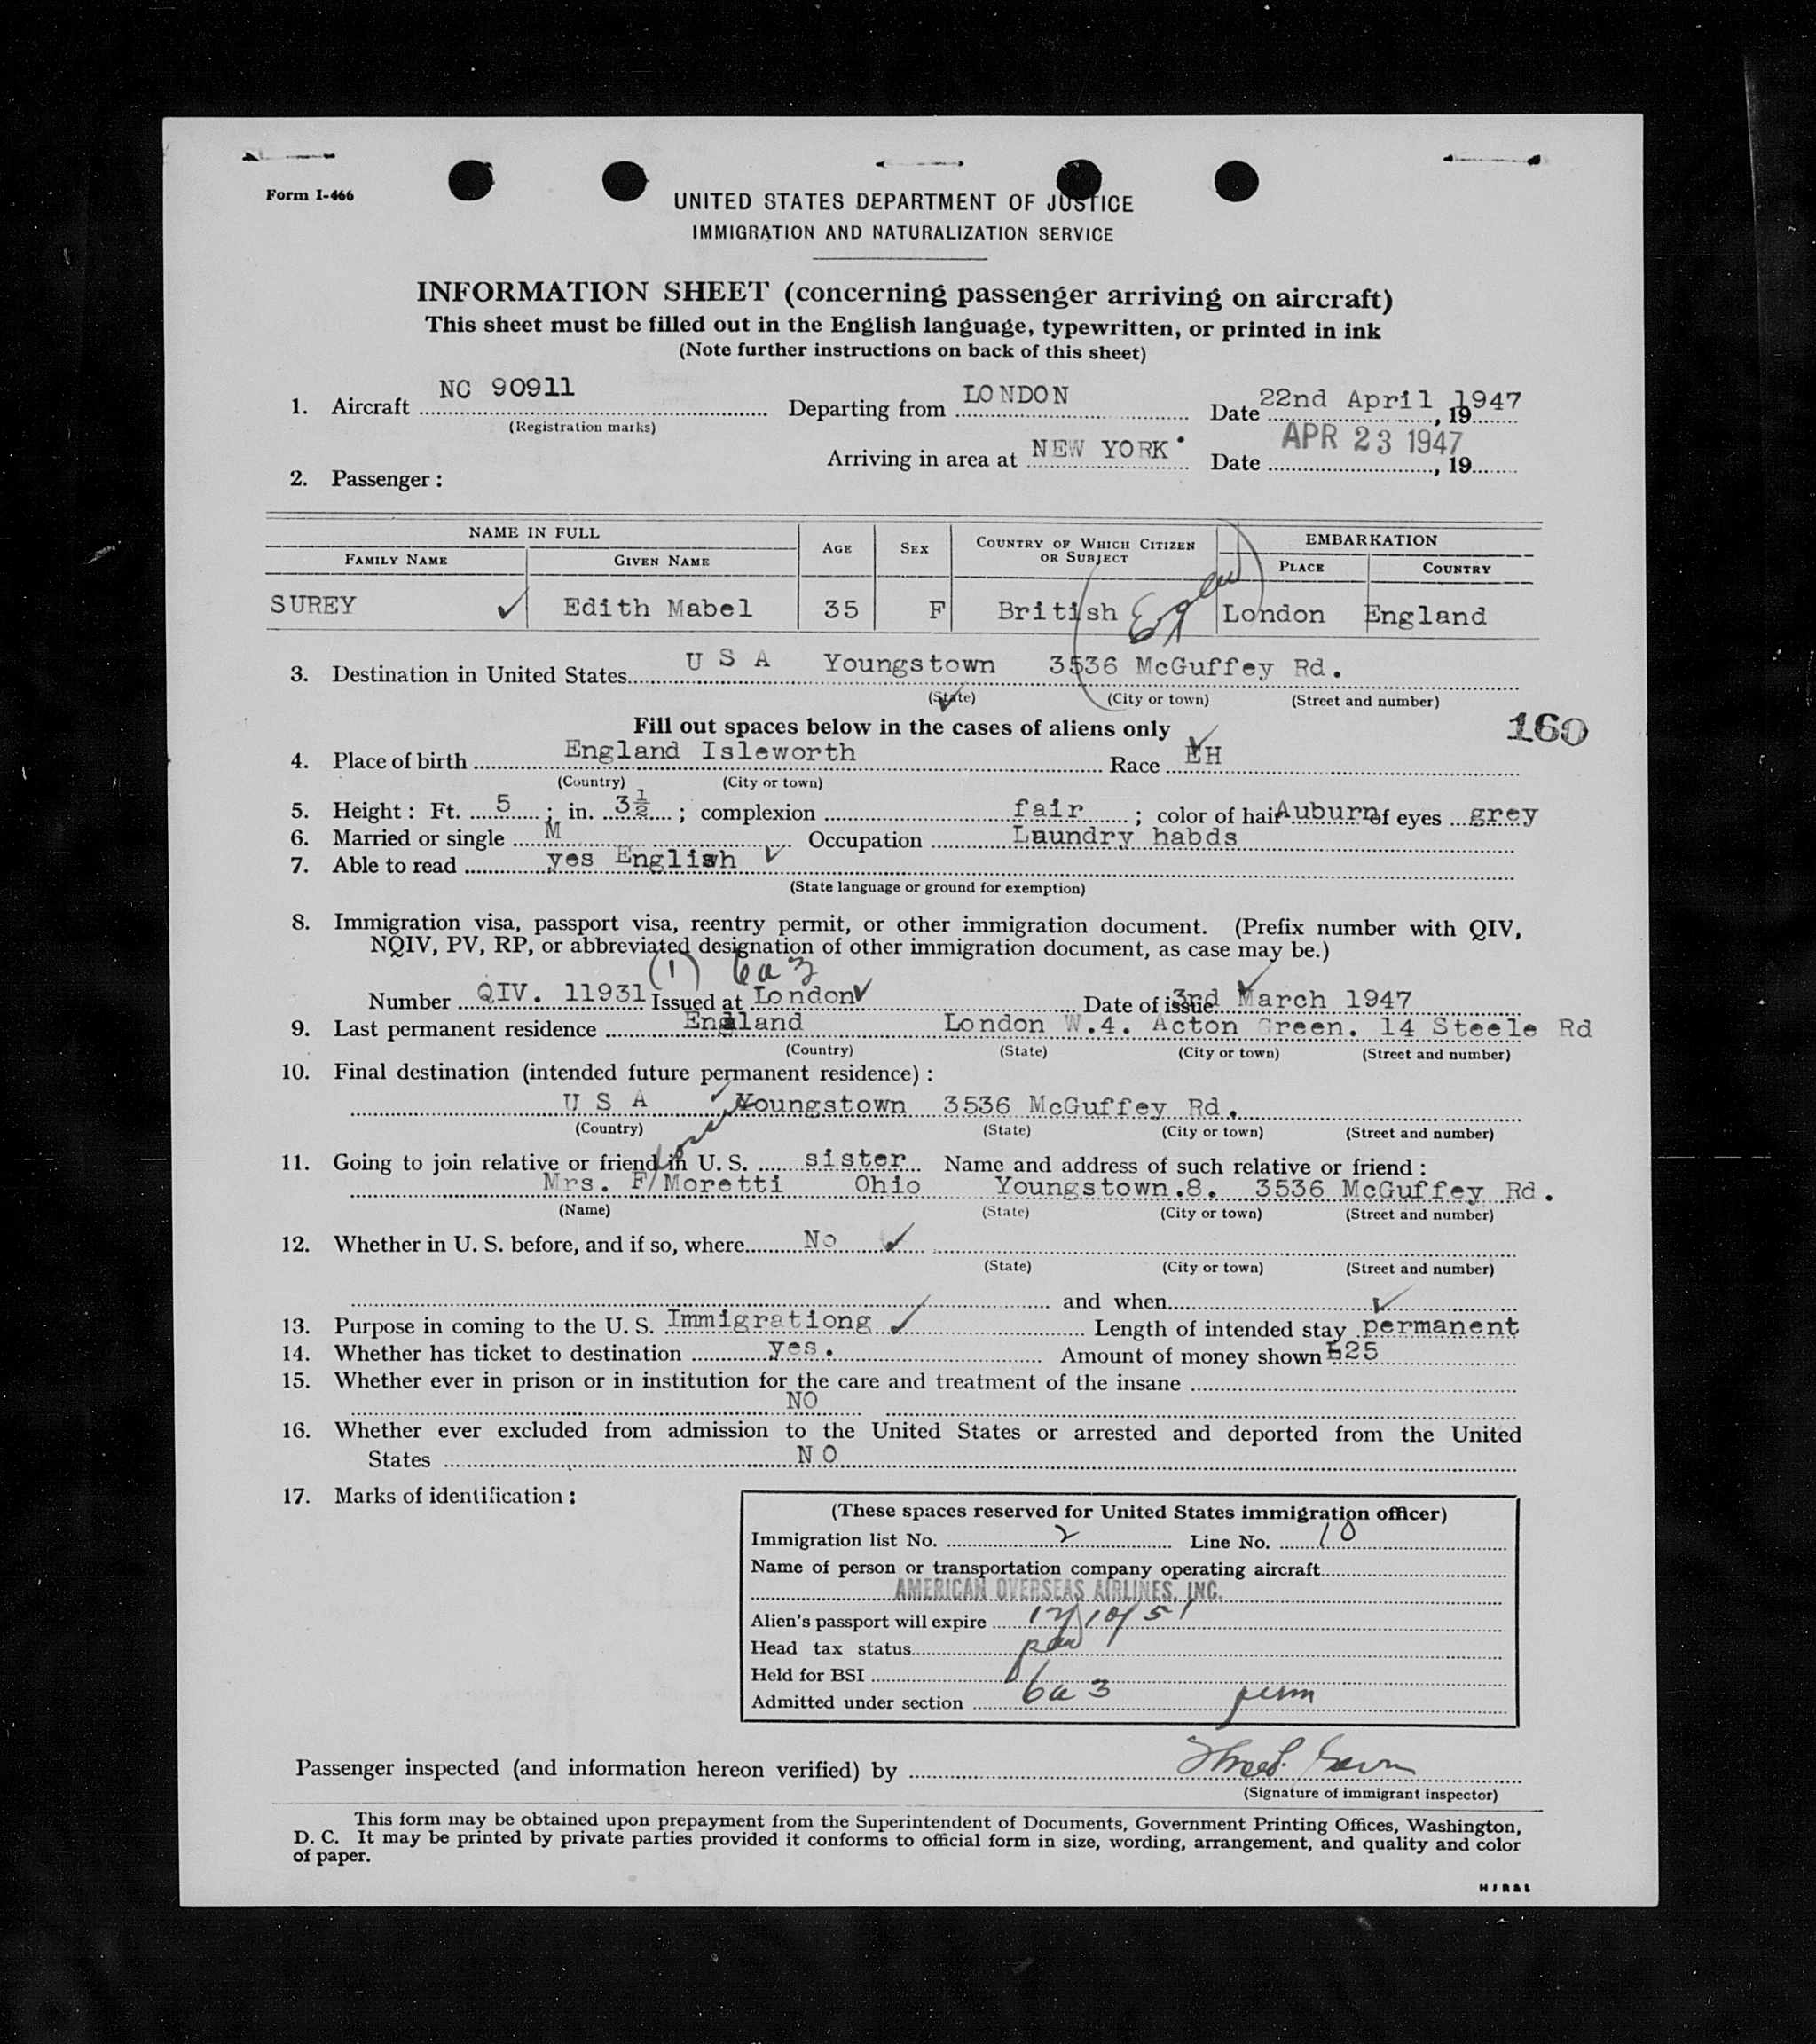 Form I-466
UNITED STATES DEPARTMENT OF JUSTICE
IMMIGRATION AND NATURALIZATION SERVICE
INFORMATION SHEET (concerning passenger arriving on aircraft)
This sheet must be filled out in the English language, typewritten, or printed in ink
(Note further instructions on back of this sheet)
1. Aircraft NC 90911 Departing from LONDON Date 22nd April 1947, 19
(Registration marks)
Arriving in area at NEW YORK Date APR 23 1947, 19
2. Passenger:
NAME IN FULL AGE SEX COUNTRY OF WHICH CITIZEN OR SUBJECT EMBARKATION
FAMILY NAME GIVEN NAME PLACE COUNTRY
SUREY Edith Mabel 35 F British London England
3. Destination in United States U S A Youngstown 3536 McGuffey Rd.
(State) (City or town) (Street and number)
Fill out spaces below in the cases of aliens only
160
4. Place of birth England Isleworth Race EH
(Country) (City or town)
5. Height: Ft. 5; in. 3½; complexion fair; color of hair Auburn of eyes grey
6. Married or single M Occupation Laundry habds
7. Able to read yes English
(State language or ground for exemption)
8. Immigration visa, passport visa, reentry permit, or other immigration document. (Prefix number with QIV,
NQIV, PV, RP, or abbreviated designation of other immigration document, as case may be.)
(1) 6a3
Number QIV. 11931 Issued at London Date of issue 3rd March 1947
9. Last permanent residence England London W.4. Acton Green. 14 Steele Rd
(Country) (State) (City or town) (Street and number)
10. Final destination (intended future permanent residence):
U S A Youngstown 3536 McGuffey Rd.
(Country) (State) (City or town) (Street and number)
11. Going to join relative or friend in U. S. sister Name and address of such relative or friend:
Mrs. F/Moretti Ohio Youngstown.8. 3536 McGuffey Rd.
(Name) (State) (City or town) (Street and number)
12. Whether in U. S. before, and if so, where No
(State) (City or town) (Street and number)
and when
13. Purpose in coming to the U. S. Immigrationg Length of intended stay permanent
14. Whether has ticket to destination yes. Amount of money shown £25
15. Whether ever in prison or in institution for the care and treatment of the insane
NO
16. Whether ever excluded from admission to the United States or arrested and deported from the United
States NO
17. Marks of identification:
(These spaces reserved for United States immigration officer)
Immigration list No. 2 Line No. 10
Name of person or transportation company operating aircraft
AMERICAN OVERSEAS AIRLINES, INC.
Alien's passport will expire 12/10/51
Head tax status
Held for BSI
Admitted under section 6a3 perm
Passenger inspected (and information hereon verified) by
(Signature of immigrant inspector)
This form may be obtained upon prepayment from the Superintendent of Documents, Government Printing Offices, Washington,
D. C. It may be printed by private parties provided it conforms to official form in size, wording, arrangement, and quality and color
of paper.